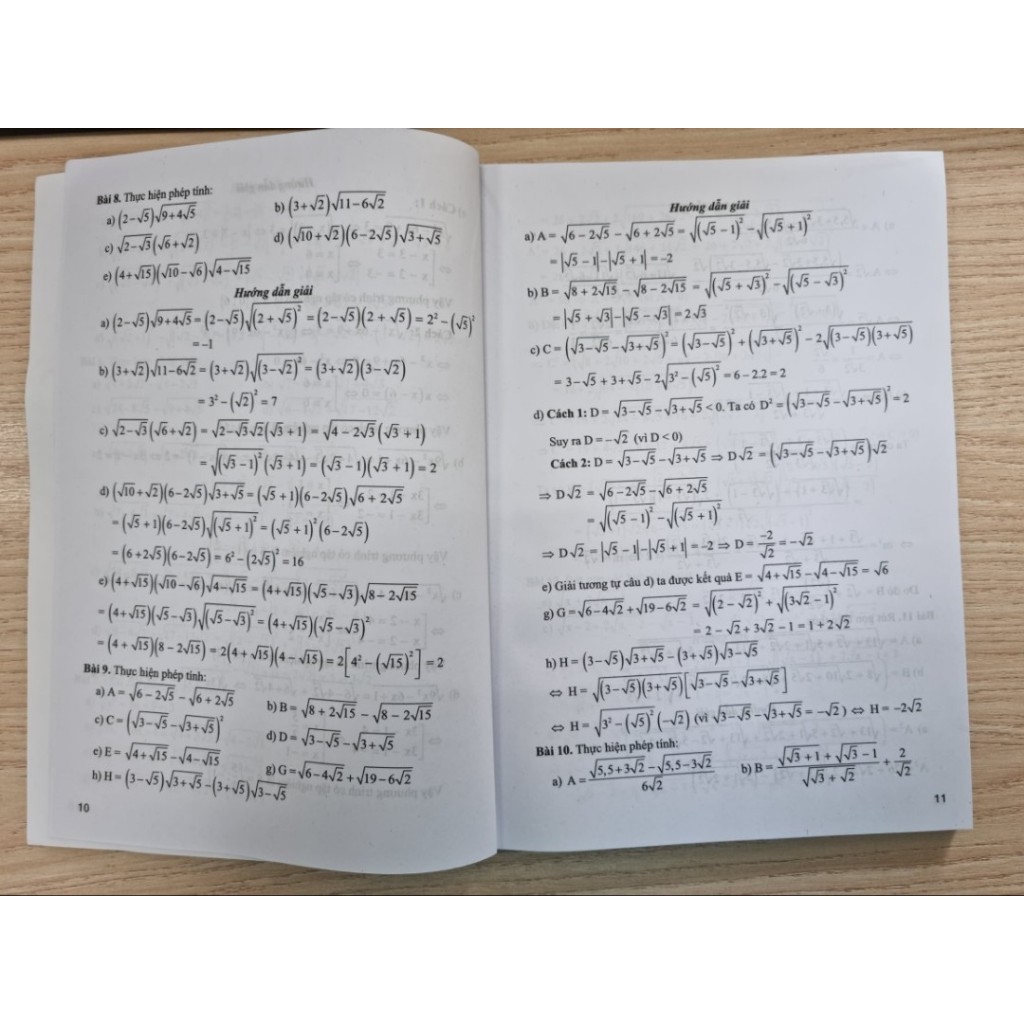 Bài 8. Thực hiện phép tính:
a) (2−√5)√(9+4√5) b) (3+√2)√(11−6√2)
c) √(2−√3)(√6+√2) d) (√10+√2)(6−2√5)√(3+√5)
e) (4+√15)(√10−√6)√(4−√15)
Hướng dẫn giải
a) (2−√5)√(9+4√5) = (2−√5)√((2+√5)²) = (2−√5)(2+√5) = 2²−(√5)²
= −1
b) (3+√2)√(11−6√2) = (3+√2)√((3−√2)²) = (3+√2)(3−√2)
= 3²−(√2)² = 7
c) √(2−√3)(√6+√2) = √(2−√3)√2(√3+1) = √(4−2√3)(√3+1)
= √((√3−1)²)(√3+1) = (√3−1)(√3+1) = 2
d) (√10+√2)(6−2√5)√(3+√5) = (√5+1)(6−2√5)√(6+2√5)
= (√5+1)(6−2√5)√((√5+1)²) = (√5+1)²(6−2√5)
= (6+2√5)(6−2√5) = 6²−(2√5)² = 16
e) (4+√15)(√10−√6)√(4−√15) = (4+√15)(√5−√3)√(8−2√15)
= (4+√15)(√5−√3)√((√5−√3)²) = (4+√15)(√5−√3)²
= (4+√15)(8−2√15) = 2(4+√15)(4−√15) = 2[4²−(√15)²] = 2
Bài 9. Thực hiện phép tính:
a) A = √(6−2√5) − √(6+2√5) b) B = √(8+2√15) − √(8−2√15)
c) C = (√(3−√5)−√(3+√5))² d) D = √(3−√5) − √(3+√5)
e) E = √(4+√15) − √(4−√15) g) G = √(6−4√2) + √(19−6√2)
h) H = (3−√5)√(3+√5) − (3+√5)√(3−√5)
10
Hướng dẫn giải
a) A = √(6−2√5) − √(6+2√5) = √((√5−1)²) − √((√5+1)²)
= |√5−1|−|√5+1| = −2
b) B = √(8+2√15) − √(8−2√15) = √((√5+√3)²) − √((√5−√3)²)
= |√5+√3|−|√5−√3| = 2√3
c) C = (√(3−√5)−√(3+√5))² = (√(3−√5))² + (√(3+√5))² − 2√((3−√5)(3+√5))
= 3−√5+3+√5−2√(3²−(√5)²) = 6−2.2 = 2
d) Cách 1: D = √(3−√5) − √(3+√5) < 0. Ta có D² = (√(3−√5)−√(3+√5))² = 2
Suy ra D = −√2 (vì D < 0)
Cách 2: D = √(3−√5) − √(3+√5) ⇒ D√2 = (√(3−√5)−√(3+√5))√2
⇒ D√2 = √(6−2√5) − √(6+2√5)
= √((√5−1)²) − √((√5+1)²)
⇒ D√2 = |√5−1|−|√5+1| = −2 ⇒ D = −2/√2 = −√2
e) Giải tương tự câu d) ta được kết quả E = √(4+√15) − √(4−√15) = √6
g) G = √(6−4√2) + √(19−6√2) = √((2−√2)²) + √((3√2−1)²)
= 2−√2+3√2−1 = 1+2√2
h) H = (3−√5)√(3+√5) − (3+√5)√(3−√5)
⇔ H = √((3−√5)(3+√5))[√(3−√5)−√(3+√5)]
⇔ H = √(3²−(√5)²)(−√2) (vì √(3−√5)−√(3+√5) = −√2) ⇔ H = −2√2
Bài 10. Thực hiện phép tính:
a) A = (√(5,5+3√2) − √(5,5−3√2))/(6√2) b) B = (√(√3+1) + √(√3−1))/√(√3+√2) + 2/√2
11